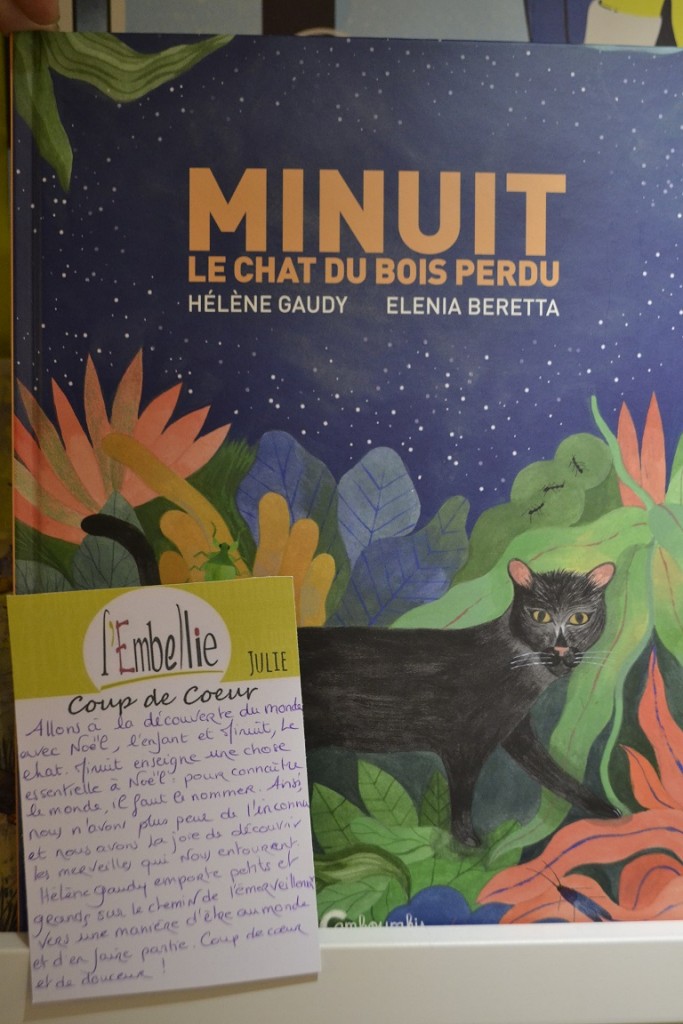 MINUIT
LE CHAT DU BOIS PERDU
HÉLÈNE GAUDY ELENIA BERETTA
l'Embellie
JULIE
Coup de Coeur
Allons à la découverte du monde
avec Noël, l'enfant et Minuit, le
chat. Minuit enseigne une chose
essentielle à Noël : pour connaître
le monde, il faut le nommer. Ainsi
nous n'avons plus peur de l'inconnu
et nous avons la joie de découvrir
les merveilles qui nous entourent.
Hélène Gaudy emporte petits et
grands sur le chemin de l'émerveillement
vers une manière d'être au monde
et d'en faire partie. Coup de coeur
et de douceur !
Cambourakis